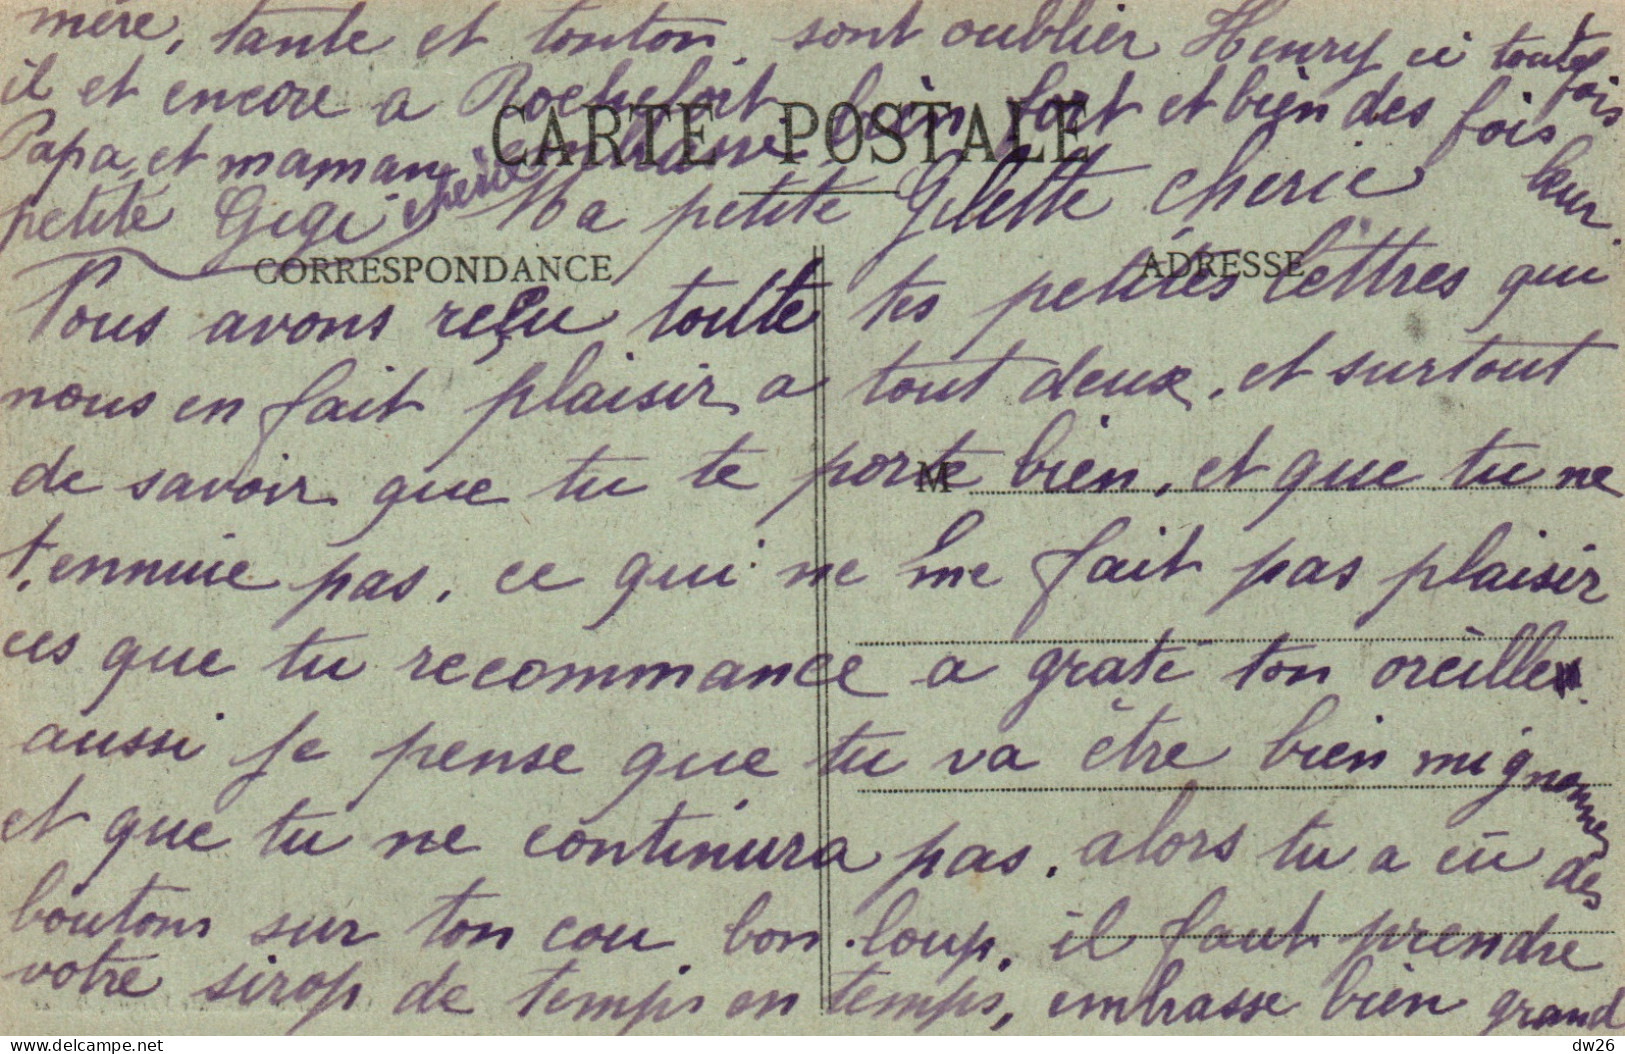 mère, tante et tonton, sont oublier Henry ci toutefois
il et encore a Rochefort bien fort et bien des fois
Papa et maman embrasse leur
petite Gigi cherie Ma petite Gilette cherie
CARTE POSTALE
CORRESPONDANCE
ADRESSE
Nous avons reçu toute tes petites lettres qui
nous en fait plaisir a tout deux, et surtout
de savoir que tu te porte bien, et que tu ne
M
t'ennuie pas, ce qui ne me fait pas plaisir
ces que tu recommance a graté ton oreille
aussi je pense que tu va être bien mignonne
et que tu ne continura pas. alors tu a eu des
boutons sur ton cou, bon loup, il faut prendre
votre sirop de temps en temps, embrasse bien grand
delcampe.net
dw26